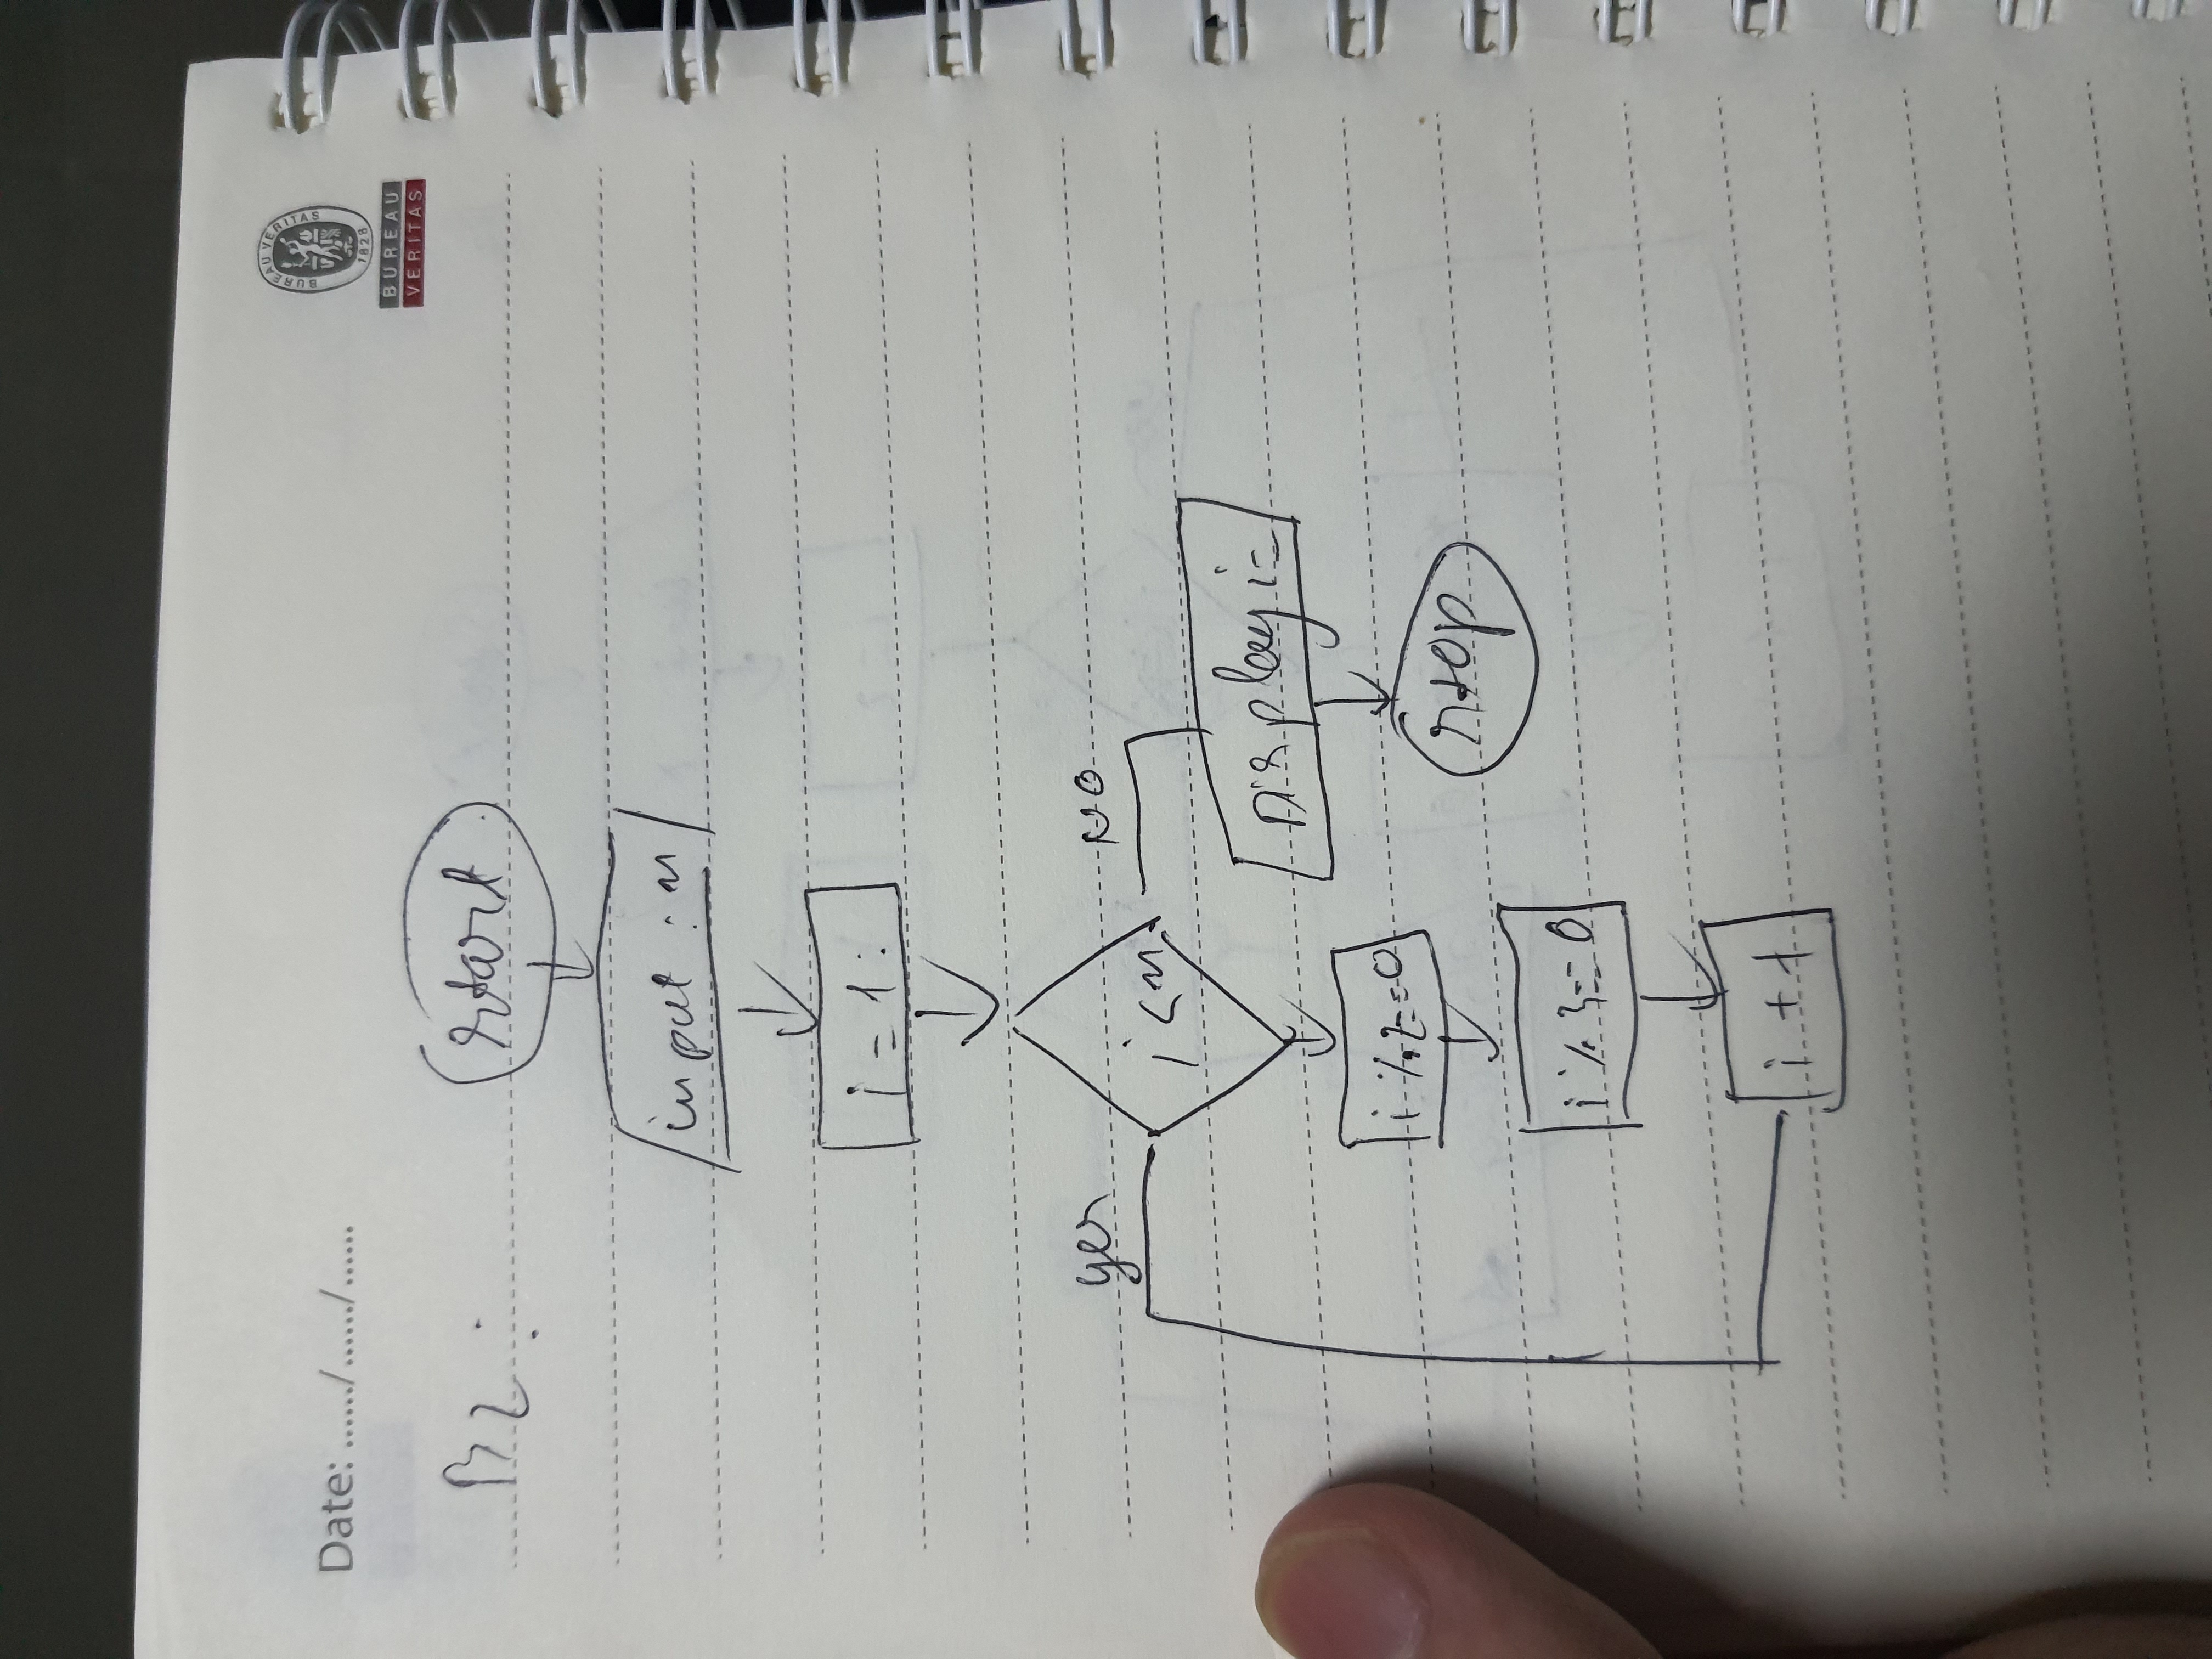 Date: ....../....../......
BUREAU VERITAS
1828
BUREAU
VERITAS
B2 :
start
input : n
i = 1 :
yes
NO
i < n
Display i =
i % 2 == 0
stop
i % 3 == 0
i + 1